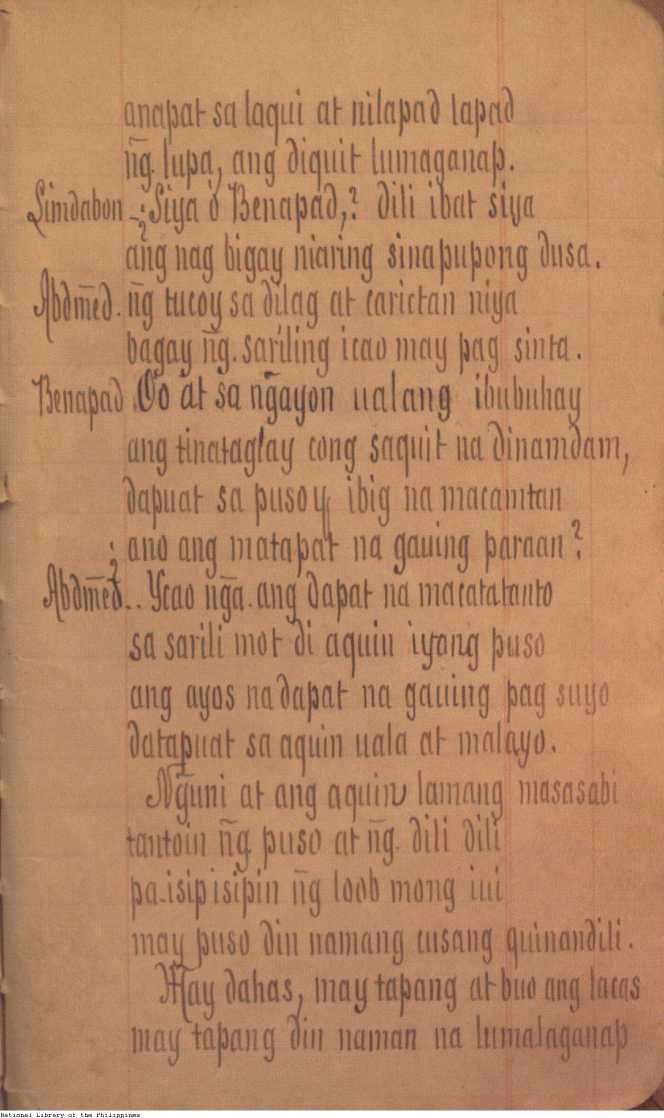 anapat sa laqui at nilapad lapad
n̄g. lupa, ang diquit lumaganap.
Limdabon -¿Siya ó Benapad,? dili ibat siya
an̄g nag bigay niaring sinapupong dusa.
Abdm̄ed. n̄g tucoy sa dilag at carictan niya
bagay n̄g. sariling icao may pag sinta.
Benapad. Oo at sa n̄gayon ualang ibubuhay
ang tinataglay cong saquit na dinamdam,
dapuat sa pusoy ibig na macamtan
¿ano ang matapat na gauing paraan?
Abdm̄ed.. Ycao n̄ga. ang dapat na macatatanto
sa sarili mot di aquin iyong puso
ang ayos na dapat na gauing pag suyo
datapuat sa aquin uala at malayo.
N̄guni at ang aquin lamang masasabi
tantoin n̄g puso at n̄g. dili dili
pa-isip isipin n̄g loob mong iui
may puso din namang cusang quinandili.
May dahas, may tapang at buo ang lacas
may tapang din naman na lumalaganap
National Library of the Philippines